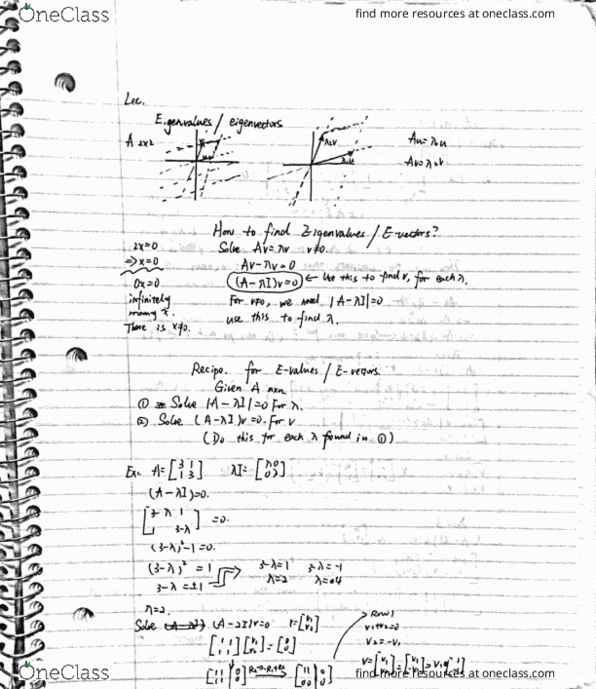 OneClass
find more resources at oneclass.com
Lec.
Eigenvalues / eigenvectors
A 2x2
Au = λ₁u
Av = λ₂v
How to find Eigenvalues / E-vectors?
Solve Av = λv v≠0.
Av - λv = 0
(A - λI)v = 0 ← Use this to find v, for each λ.
For v≠0, we need |A - λI| = 0
use this to find λ.
2x = 0
⇒ x = 0
0x = 0
infinitely
many x.
There is x≠0.
Recipe. for E-values / E-vectors.
Given A nxn
① Solve |A - λI| = 0 for λ.
② Solve (A - λI)v = 0. for v
(Do this for each λ found in ①)
Ex. A = [3 1; 1 3] λI = [λ 0; 0 λ]
(A - λI) = 0.
[3-λ 1; 1 3-λ] = 0.
(3-λ)² - 1 = 0.
(3-λ)² = 1
3-λ = ±1
3-λ = 1 3-λ = -1
λ = 2 λ = 4
λ = 2.
Solve (A - 2I)v = 0 v = [v₁; v₂]
[1 1; 1 1] [v₁; v₂] = [0; 0]
[1 1 | 0; 1 1 | 0] R₂→R₂-R₁ [1 1 | 0; 0 0 | 0]
Row 1
v₁ + v₂ = 0
v₂ = -v₁
OneClass
find more resources at oneclass.com